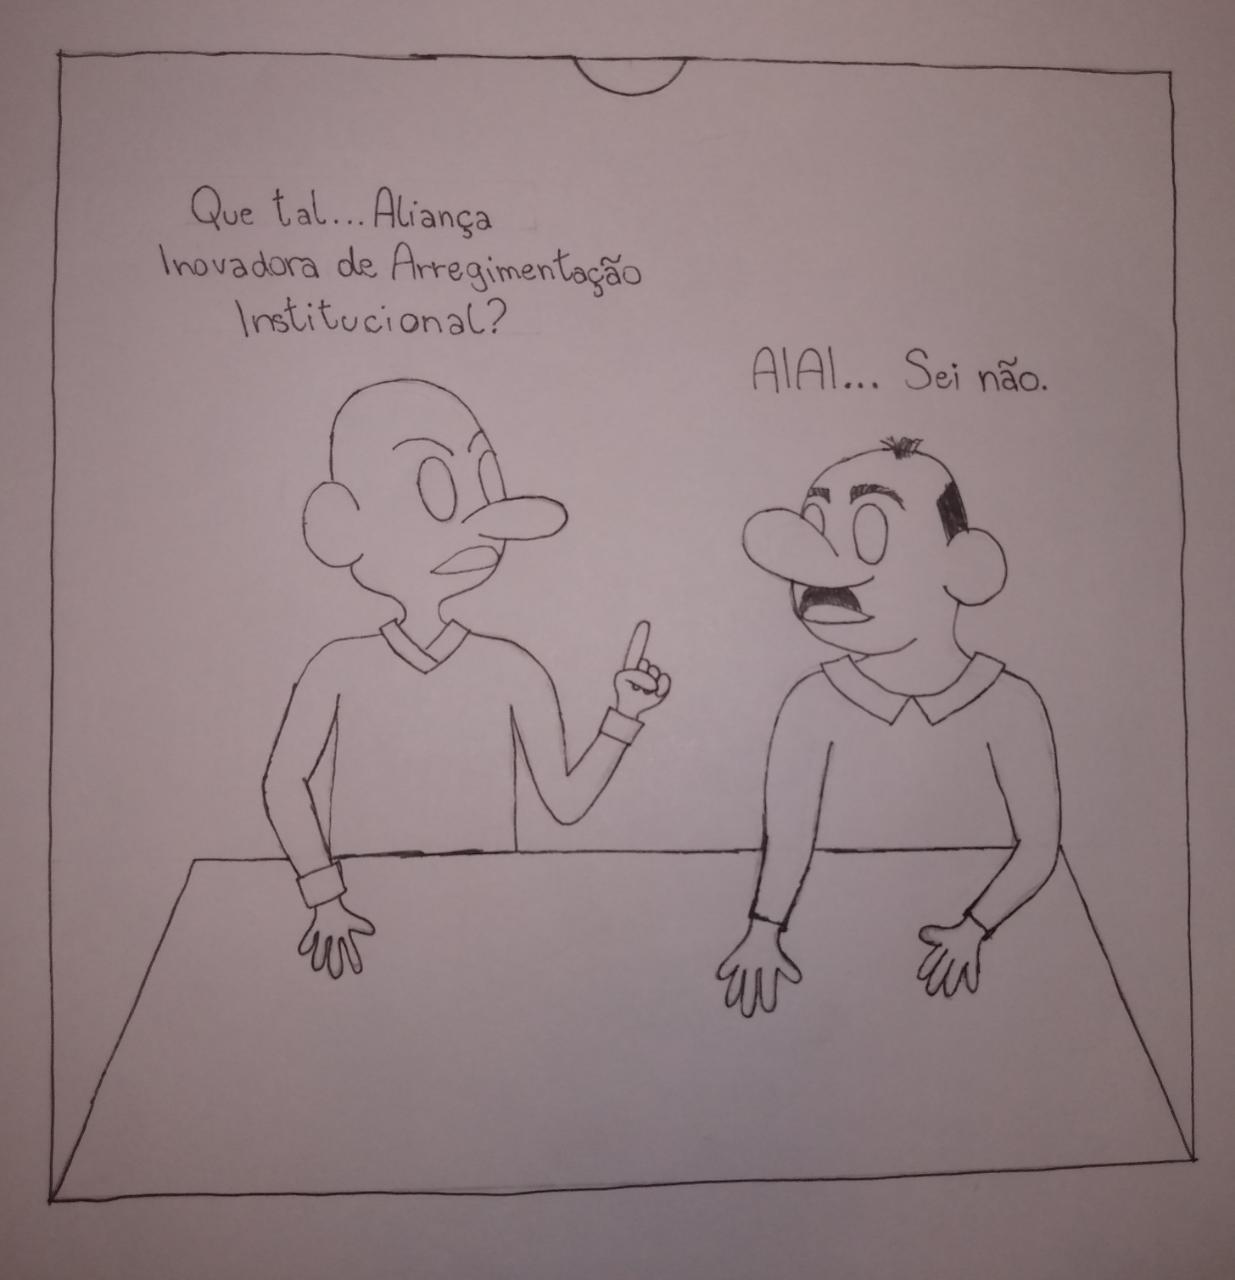 Que tal... Aliança
Inovadora de Arregimentação
Institucional?
AIAI... Sei não.